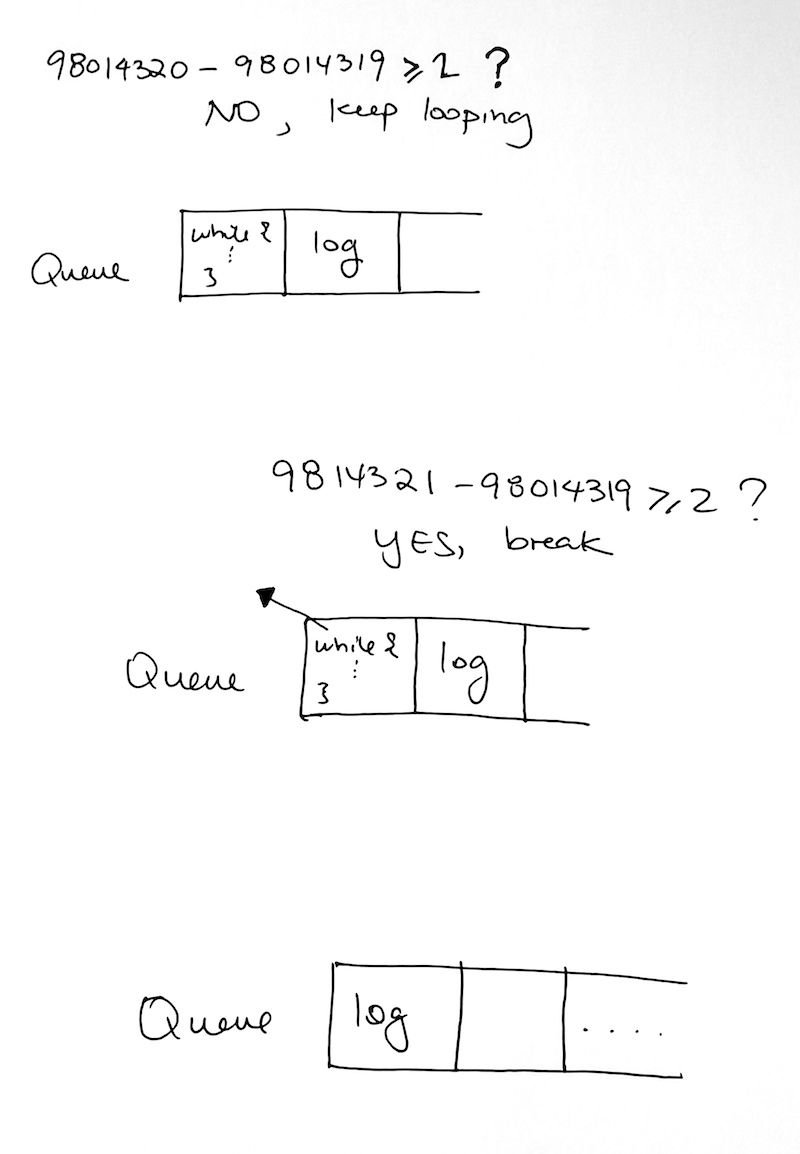 98014320 - 98014319 ≥ 2 ?
NO, keep looping
Queue
while {
⋮
}
log
9814321 - 98014319 ≥ 2 ?
YES, break
Queue
while {
⋮
}
log
Queue
log
....